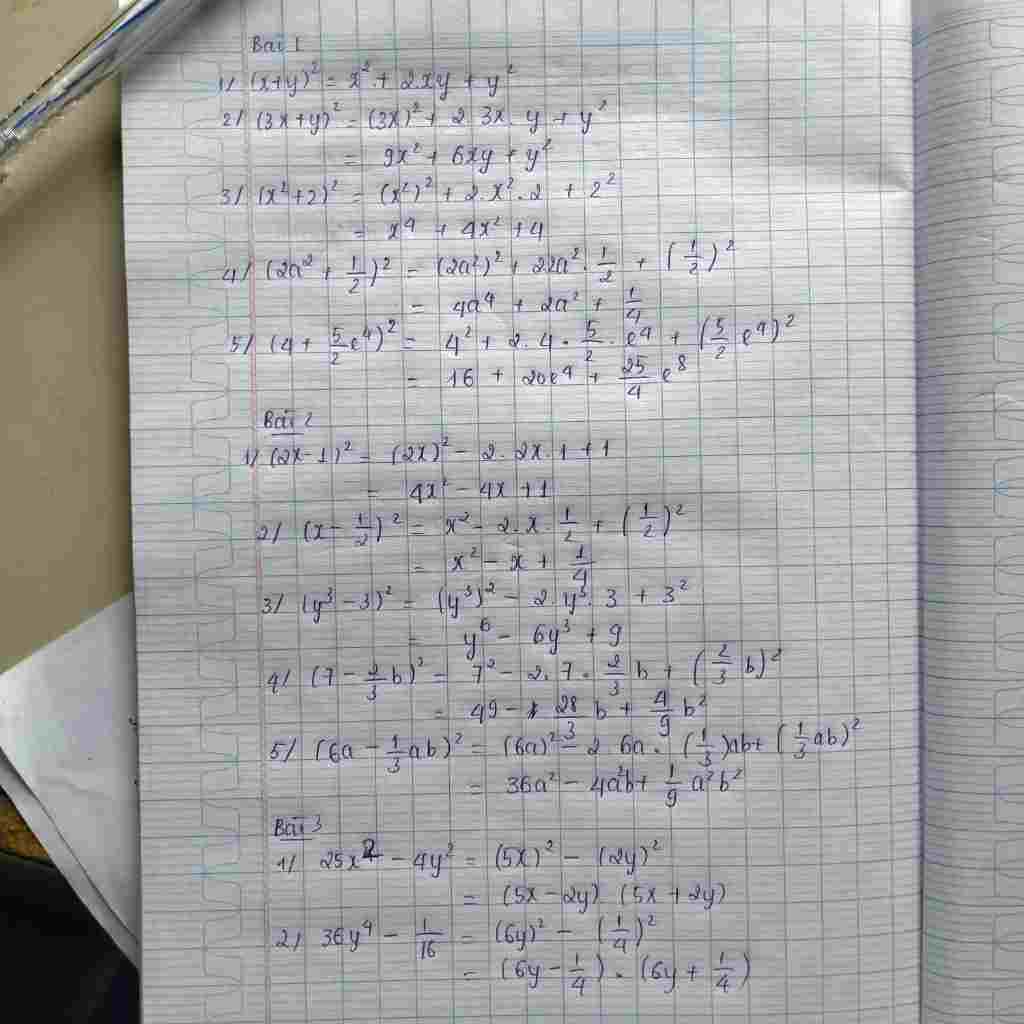 Bài 1
1/ (x+y)² = x² + 2xy + y²
2/ (3x+y)² = (3x)² + 2.3x.y + y²
= 9x² + 6xy + y²
3/ (x²+2)² = (x²)² + 2.x².2 + 2²
= x⁴ + 4x² + 4
4/ (2a² + 1/2)² = (2a²)² + 2.2a².1/2 + (1/2)²
= 4a⁴ + 2a² + 1/4
5/ (4 + 5/2 e⁴)² = 4² + 2.4.5/2.e⁴ + (5/2 e⁴)²
= 16 + 20e⁴ + 25/4 e⁸
Bài 2
1/ (2x-1)² = (2x)² - 2.2x.1 + 1
= 4x² - 4x + 1
2/ (x - 1/2)² = x² - 2.x.1/2 + (1/2)²
= x² - x + 1/4
3/ (y³ - 3)² = (y³)² - 2.y³.3 + 3²
= y⁶ - 6y³ + 9
4/ (7 - 2/3 b)² = 7² - 2.7.2/3 b + (2/3 b)²
= 49 - 28/3 b + 4/9 b²
5/ (6a - 1/3 ab)² = (6a)² - 2 6a.(1/3)ab + (1/3 ab)²
= 36a² - 4a²b + 1/9 a²b²
Bài 3
1/ 25x² - 4y² = (5x)² - (2y)²
= (5x - 2y) (5x + 2y)
2/ 36y⁴ - 1/16 = (6y)² - (1/4)²
= (6y - 1/4) . (6y + 1/4)